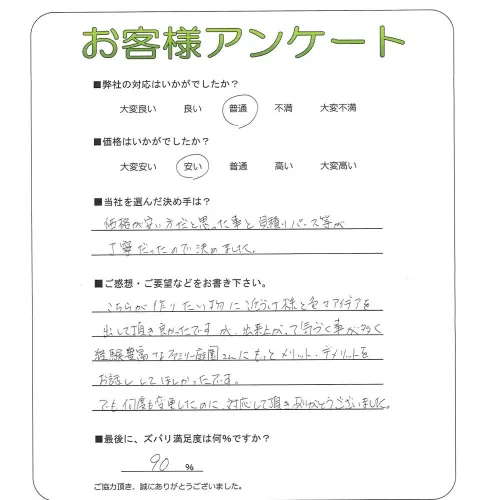 お客様アンケート
■弊社の対応はいかがでしたか？
大変良い 良い 普通 不満 大変不満
■価格はいかがでしたか？
大変安い 安い 普通 高い 大変高い
■当社を選んだ決め手は？
価格が安い方だと思った事と見積りパース等が
丁寧だったので決めました。
■ご感想・ご要望などをお書き下さい。
こちらが作りたい物に近づけ様と色々アイデアを
出して頂き良かったですが、出来上がって気づく事が多く
経験豊富なファミリー庭園さんにもっとメリット・デメリットを
お話ししてほしかったです。
でも何度も変更したのに対応して頂きありがとうございました。
■最後に、ズバリ満足度は何%ですか？
90 %
ご協力頂き、誠にありがとうございました。